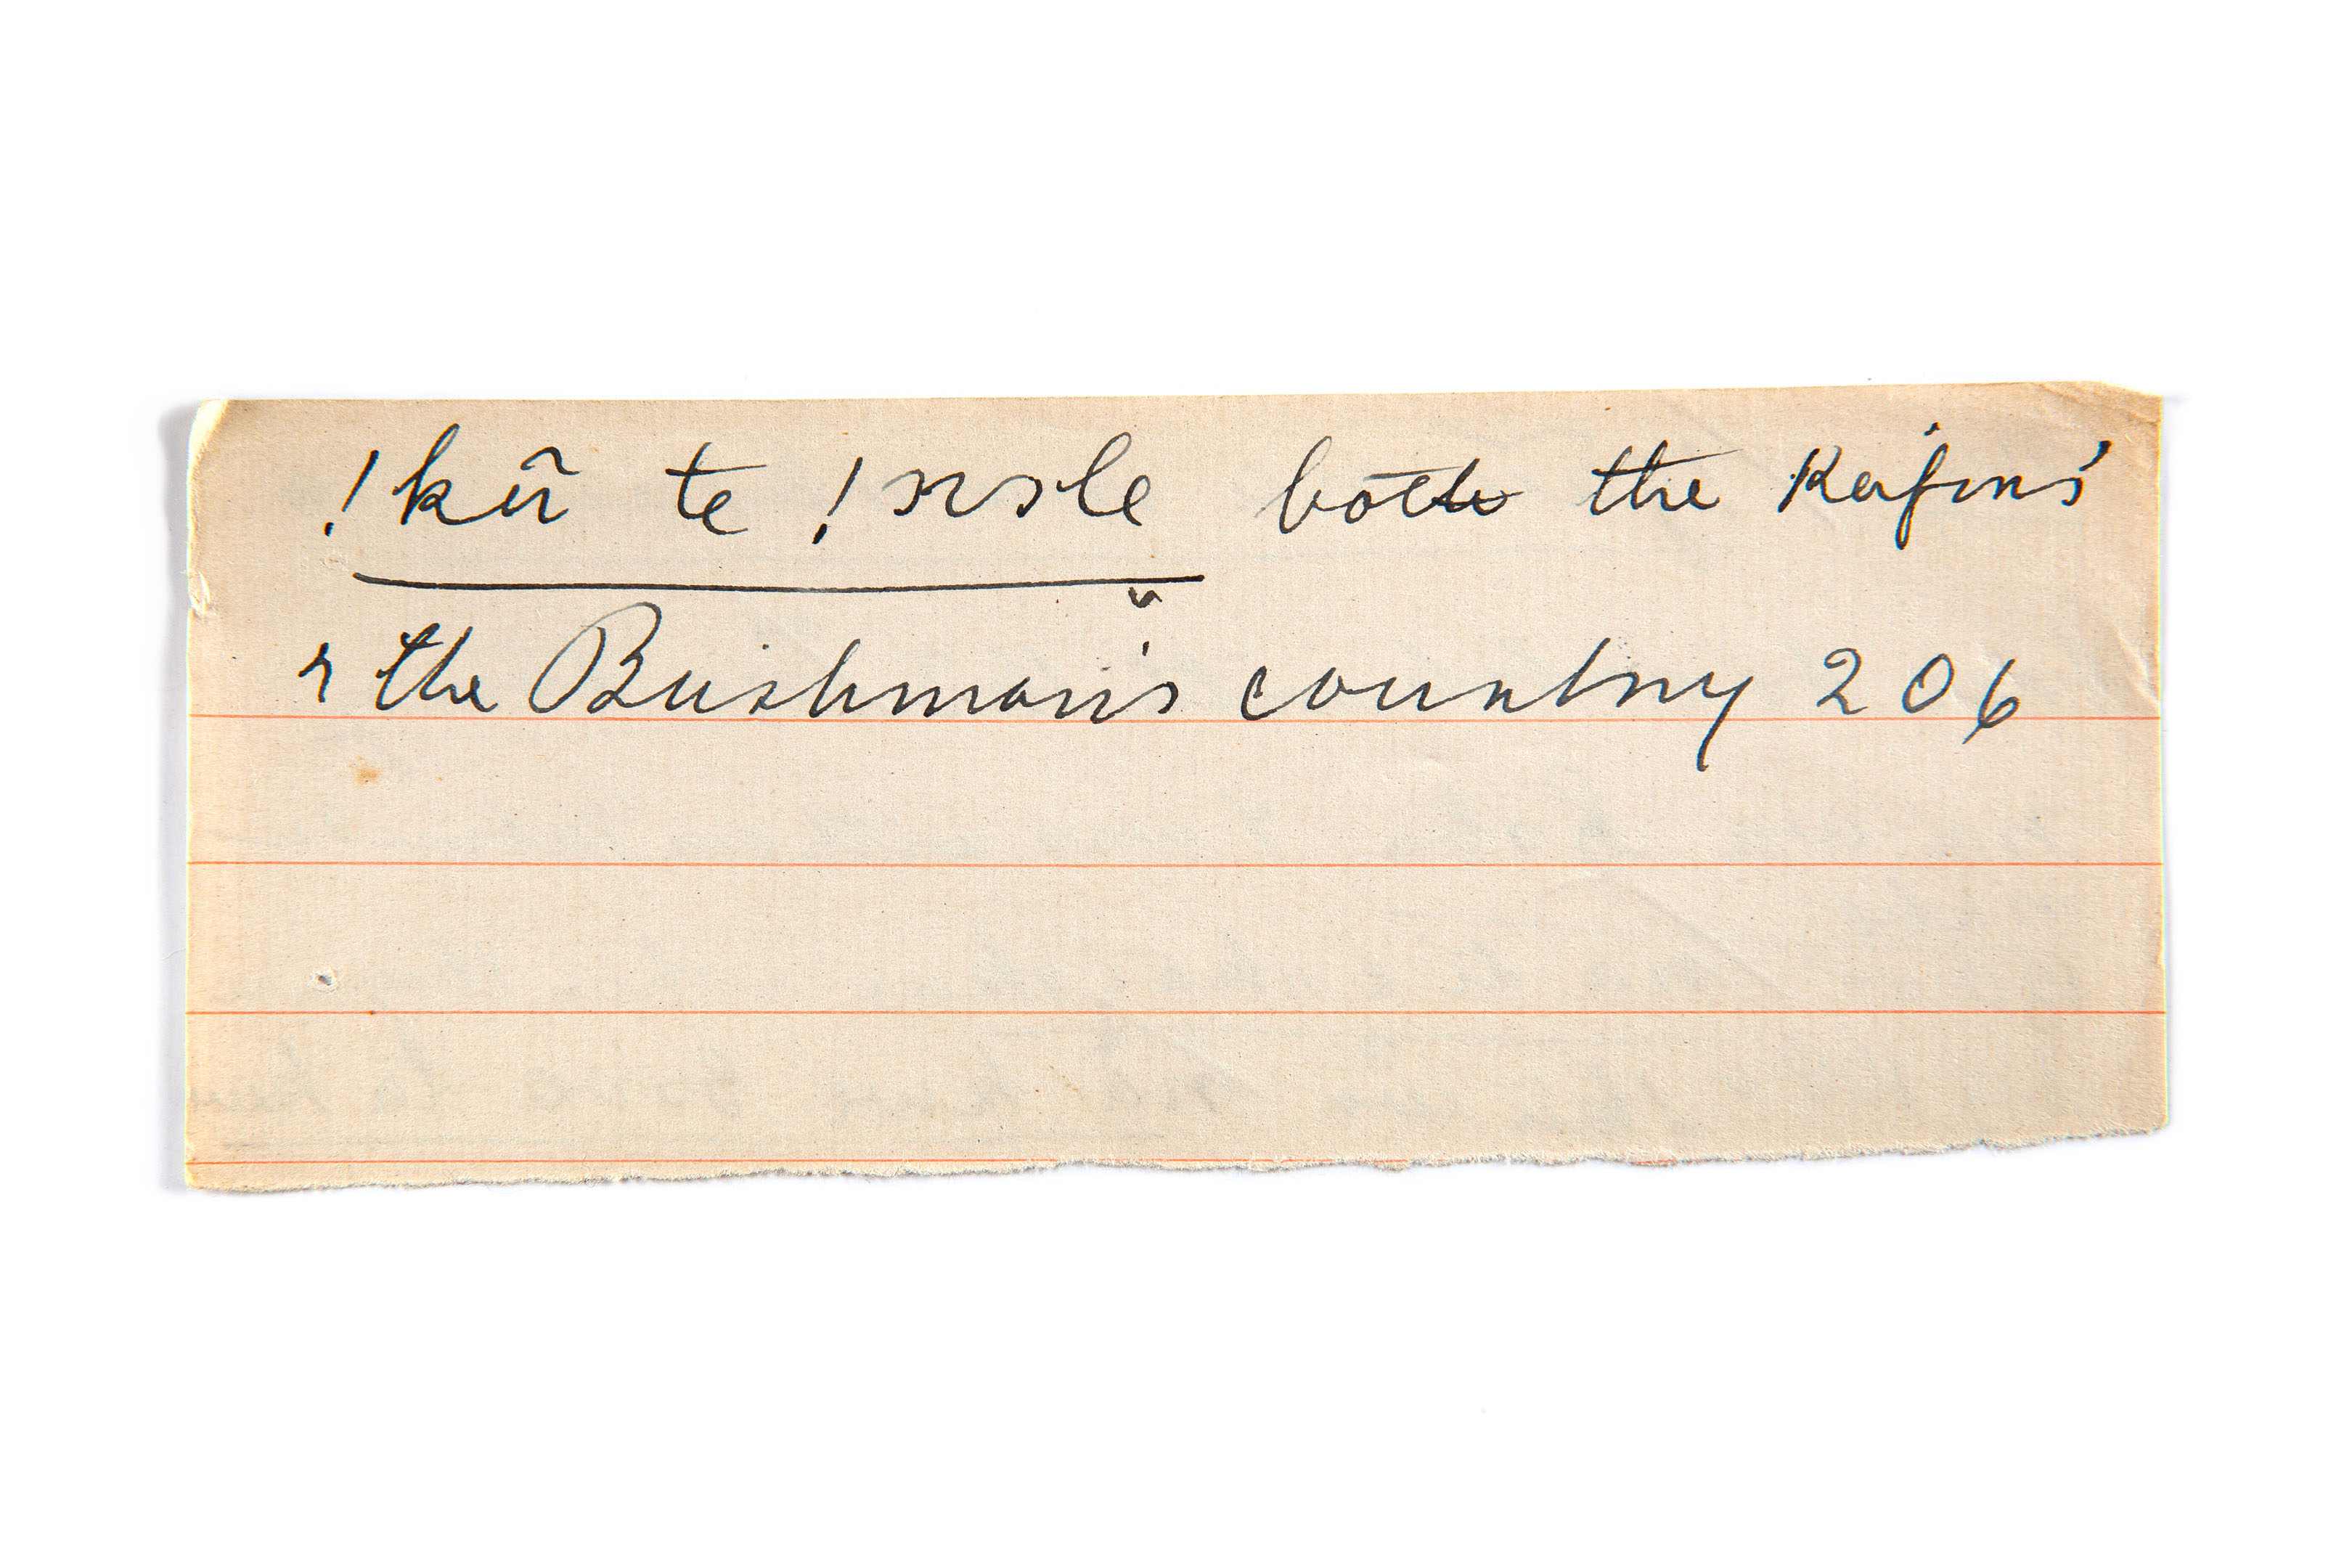 !kũ te ! both the Kafirs'
& the Bushman's country 206